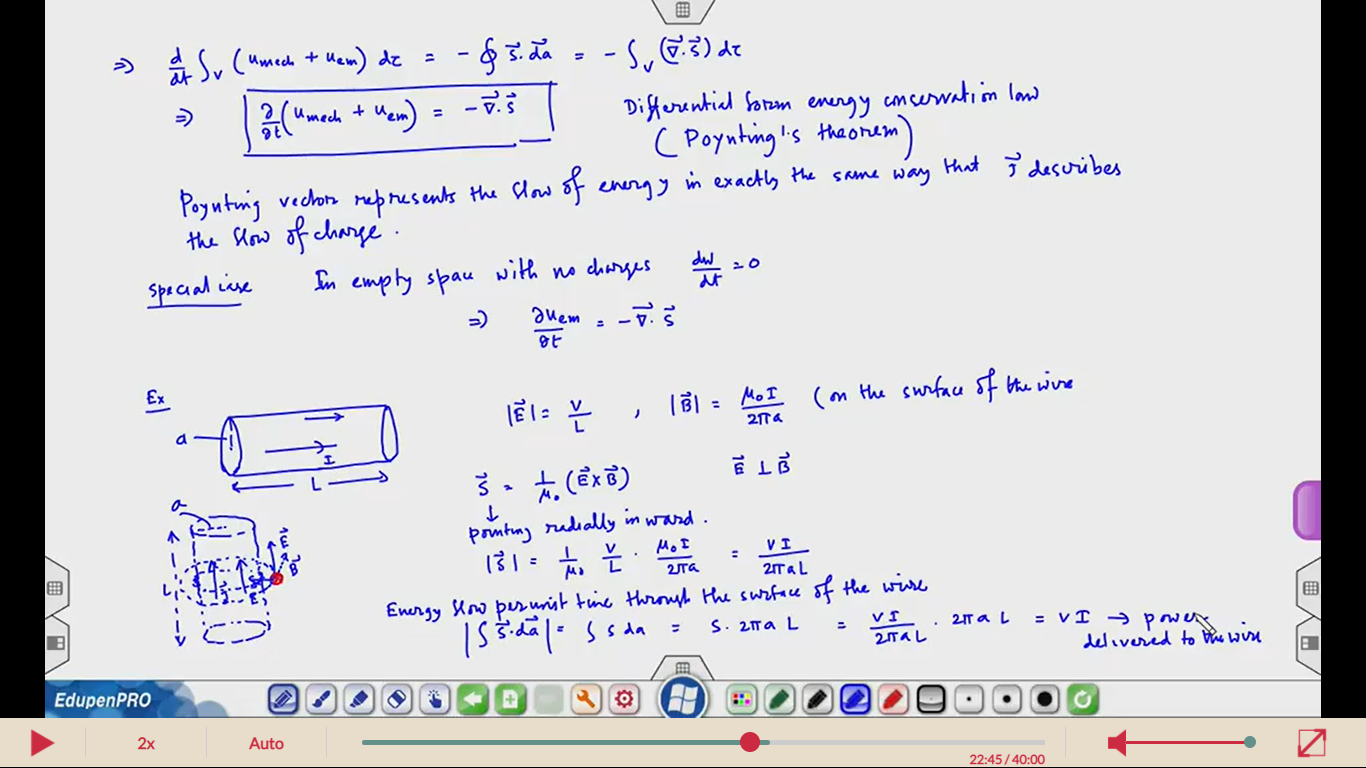 ⇒ d/dt ∫_V (u_mech + u_em) dτ = - ∮ S⃗. d⃗a = - ∫_V (∇⃗. S⃗) dτ
⇒ ∂/∂t (u_mech + u_em) = - ∇⃗. S⃗ Differential form energy conservation law
(Poynting's theorem)
Poynting vector represents the flow of energy in exactly the same way that J⃗ describes
the flow of charge.
Special case In empty space with no charges dw/dt = 0
⇒ ∂u_em/∂t = - ∇⃗. S⃗
Ex
|E⃗| = V/L , |B⃗| = μ₀I/2πa (on the surface of the wire
a
I
L
S⃗ = 1/μ₀ (E⃗ x B⃗) E⃗ ⊥ B⃗
↓
pointing radially inward.
a
E⃗
B⃗
L
|S⃗| = 1/μ₀ V/L . μ₀I/2πa = VI/2πaL
Energy flow per unit time through the surface of the wire
|∫ S⃗. d⃗a| = ∫ s da = S. 2πa L = VI/2πaL . 2πa L = VI → power
delivered to the wire
EdupenPRO
2x Auto 22:45 / 40:00